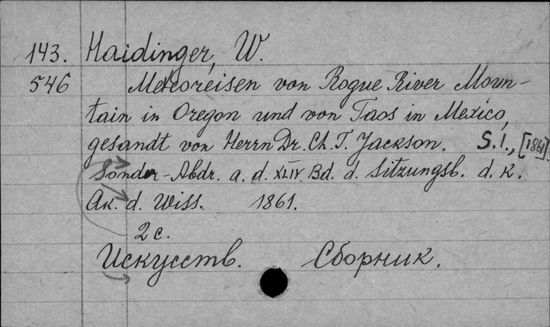 143. Haidinger, W.
546 Meteoreisen von Rogue River Moun-
tain in Oregon und von Taos in Mexico,
gesandt von Herrn Dr. Ch. T. Jackson. S. l., [1861]
Sonder-Abdr. a. d. XLIV Bd. d. Sitzungsb. d. K.
Ak. d. Wiss. 1861.
2 с.
Искусств. Сборник.